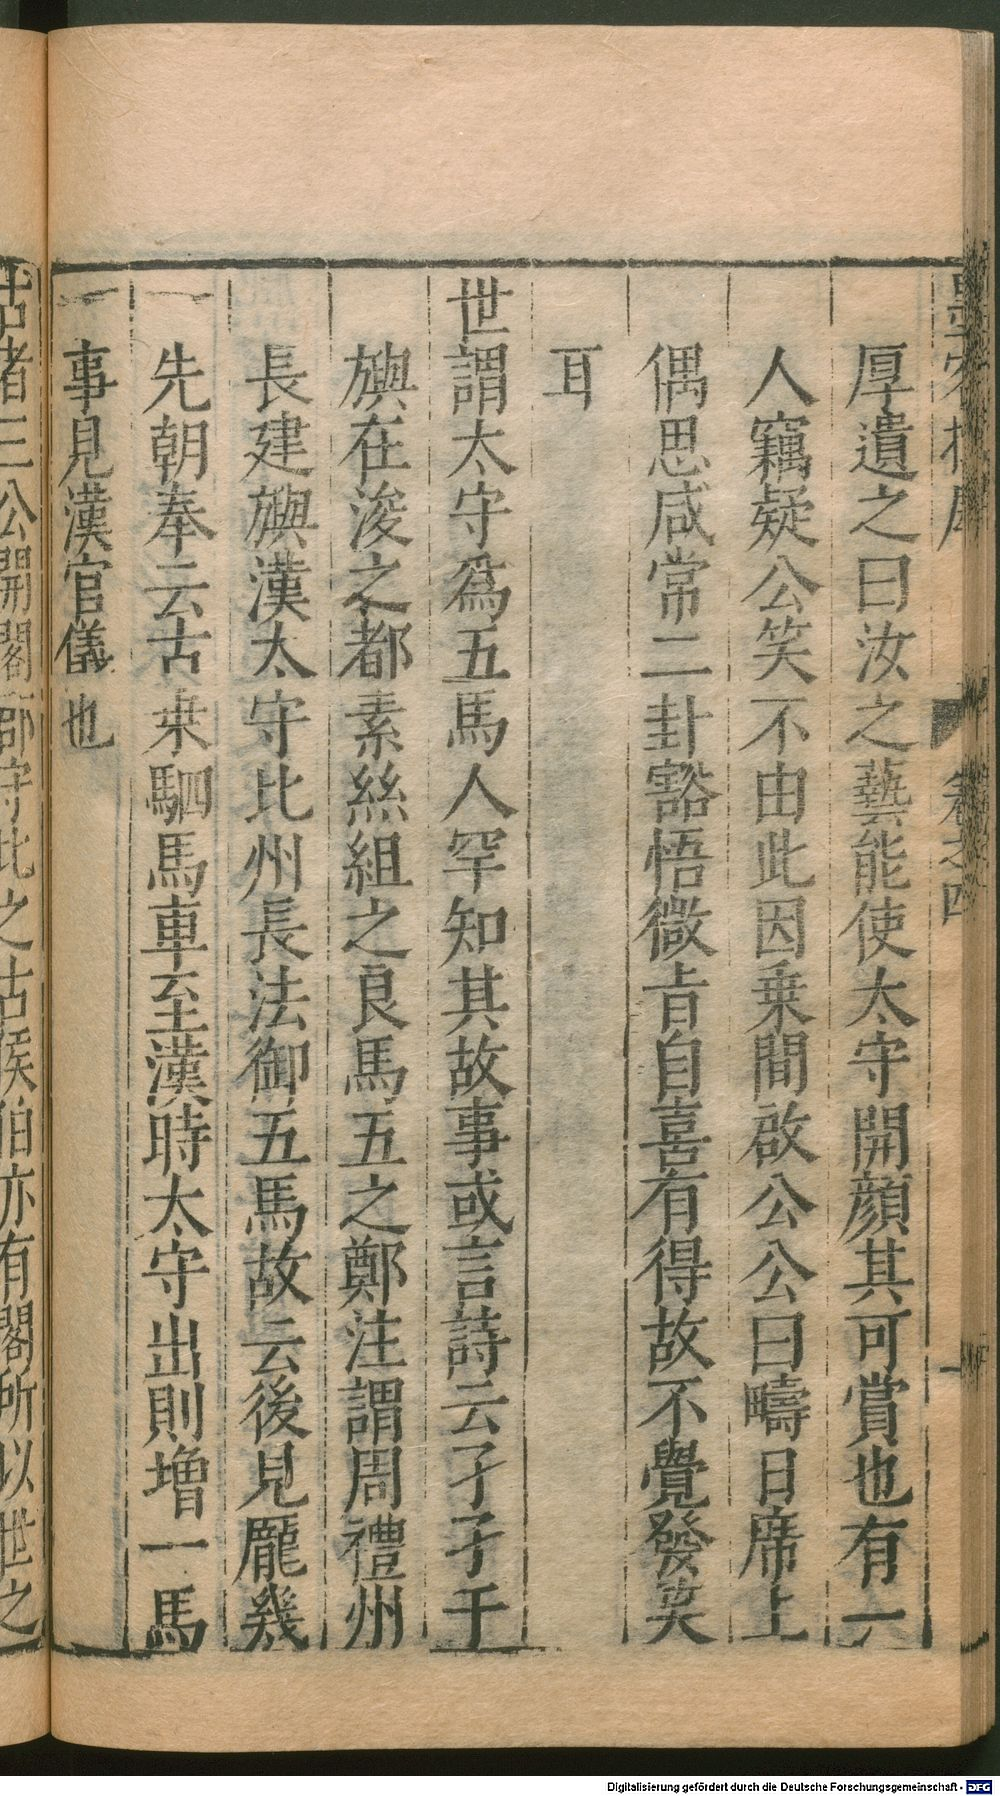 厚遺之曰汝之藝能使太守開顔其可賞也有一
人竊疑公笑不由此因乗間啟公公曰疇日席上
偶思咸常二卦豁悟微旨自喜有得故不覺發𥬇
耳
世謂太守為五馬人罕知其故事或言詩云孑孑干
旟在浚之都素絲組之良馬五之鄭注謂周禮州
長建旟漢太守比州長法御五馬故云後見龎幾
先朝奉云古乗駟馬車至漢時太守出則增一馬
事見漢官儀也
古者三公開閣郡守比之古侯伯亦有閣所以世之
卷之四
Digitalisierung gefördert durch die Deutsche Forschungsgemeinschaft - DFG